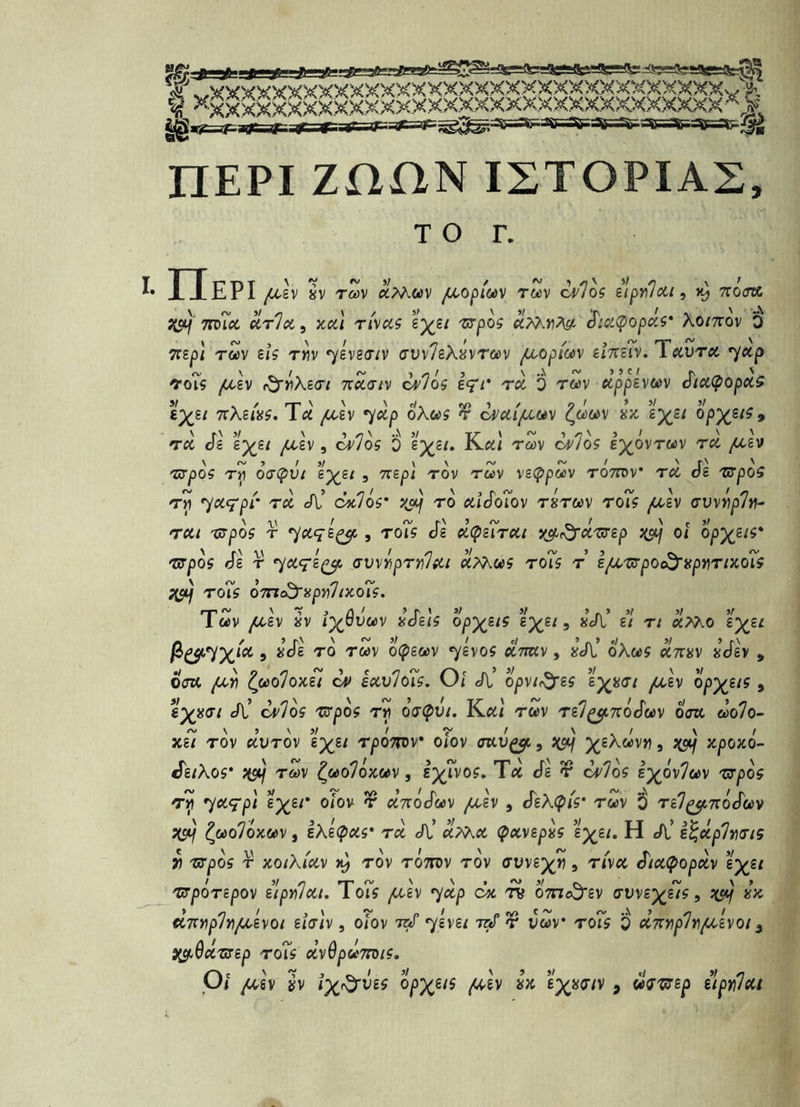 ΠΕΡΙ ΖΩΩΝ ΙΣΤΟΡΙΑΣ,
ΤΟ Γ.
I. ΠΕΡΙ μὲν ȣ͂ν τῶν ἄλλων μορίων τῶν ἐντὸς εἴρηται, ϗ πόσα
καὶ ποῖα ἄττα, καὶ τίνας ἔχει πρὸς ἄλληλα διαφοράς· λοιπὸν δὲ
περὶ τῶν εἰς τὴν γένεσιν συντελȣντων μορίων εἰπεῖν. Ταῦτα γὰρ
τοῖς μὲν θήλεσι πᾶσιν ἐντός ἐϛι· τὰ δὲ τῶν ἀῤῥένων διαφορὰς
ἔχει πλείȣς. Τὰ μὲν γὰρ ὅλως τῶν ἐναίμων ζώων ȣ̓κ ἔχει ὄρχεις,
τὰ δὲ ἔχει μὲν, ἐντὸς δὲ ἔχει. Καὶ τῶν ἐντὸς ἐχόντων τὰ μὲν
πρὸς τῇ ὀσφύϊ ἔχει, περὶ τὸν τῶν νεφρῶν τόπον· τὰ δὲ πρὸς
τῇ γαϛρί· τὰ δ' ἐκτός· καὶ τὸ αἰδοῖον τȣ́των τοῖς μὲν συνήρτη-
ται πρὸς τὴν γαϛέρα, τοῖς δὲ ἀφεῖται καθάπερ καὶ οἱ ὄρχεις·
πρὸς δὲ τὴν γαϛέρα συνήρτηται ἄλλως τοῖς τ' ἐμπροσθȣρητικοῖς
καὶ τοῖς ὀπισθȣρητικοῖς.
Τῶν μὲν ȣ͂ν ἰχθύων ȣ̓δεὶς ὄρχεις ἔχει, ȣ̓δ' εἴ τι ἄλλο ἔχει
βράγχια, ȣ̓δὲ τὸ τῶν ὄφεων γένος ἅπαν, ȣ̓δ' ὅλως ἄπȣν ȣ̓δὲν,
ὅσα μὴ ζωοτοκεῖ ἐν ἑαυτοῖς. Οἱ δ' ὄρνιθες ἔχȣσι μὲν ὄρχεις,
ἔχȣσι δ' ἐντὸς πρὸς τῇ ὀσφύϊ. Καὶ τῶν τετραπόδων ὅσα ὠοτο-
κεῖ τὸν αὐτὸν ἔχει τρόπον· οἷον σαύρα, καὶ χελώνη, καὶ κροκό-
δειλος· καὶ τῶν ζωοτόκων, ἐχῖνος. Τὰ δὲ τῶν ἐντὸς ἐχόντων πρὸς
τῇ γαϛρὶ ἔχει· οἷον τῶν ἀπόδων μὲν, δελφίς· τῶν δὲ τετραπόδων
καὶ ζωοτόκων, ἐλέφας· τὰ δ' ἄλλα φανερȣ̀ς ἔχει. Η δ' ἐξάρτησις
ἡ πρὸς τὴν κοιλίαν ϗ τὸν τόπον τὸν συνεχῆ, τίνα διαφορὰν ἔχει
πρότερον εἴρηται. Τοῖς μὲν γὰρ ἐκ τȣ͂ ὄπισθεν συνεχεῖς, καὶ ȣ̓κ
ἀπηρτημένοι εἰσὶν, οἷον τῷ γένει τῷ τῶν ὑῶν· τοῖς δὲ ἀπηρτημένοι,
καθάπερ τοῖς ἀνθρώποις.
Οἱ μὲν ȣ͂ν ἰχθύες ὄρχεις μὲν ȣ̓κ ἔχȣσιν, ὥσπερ εἴρηται